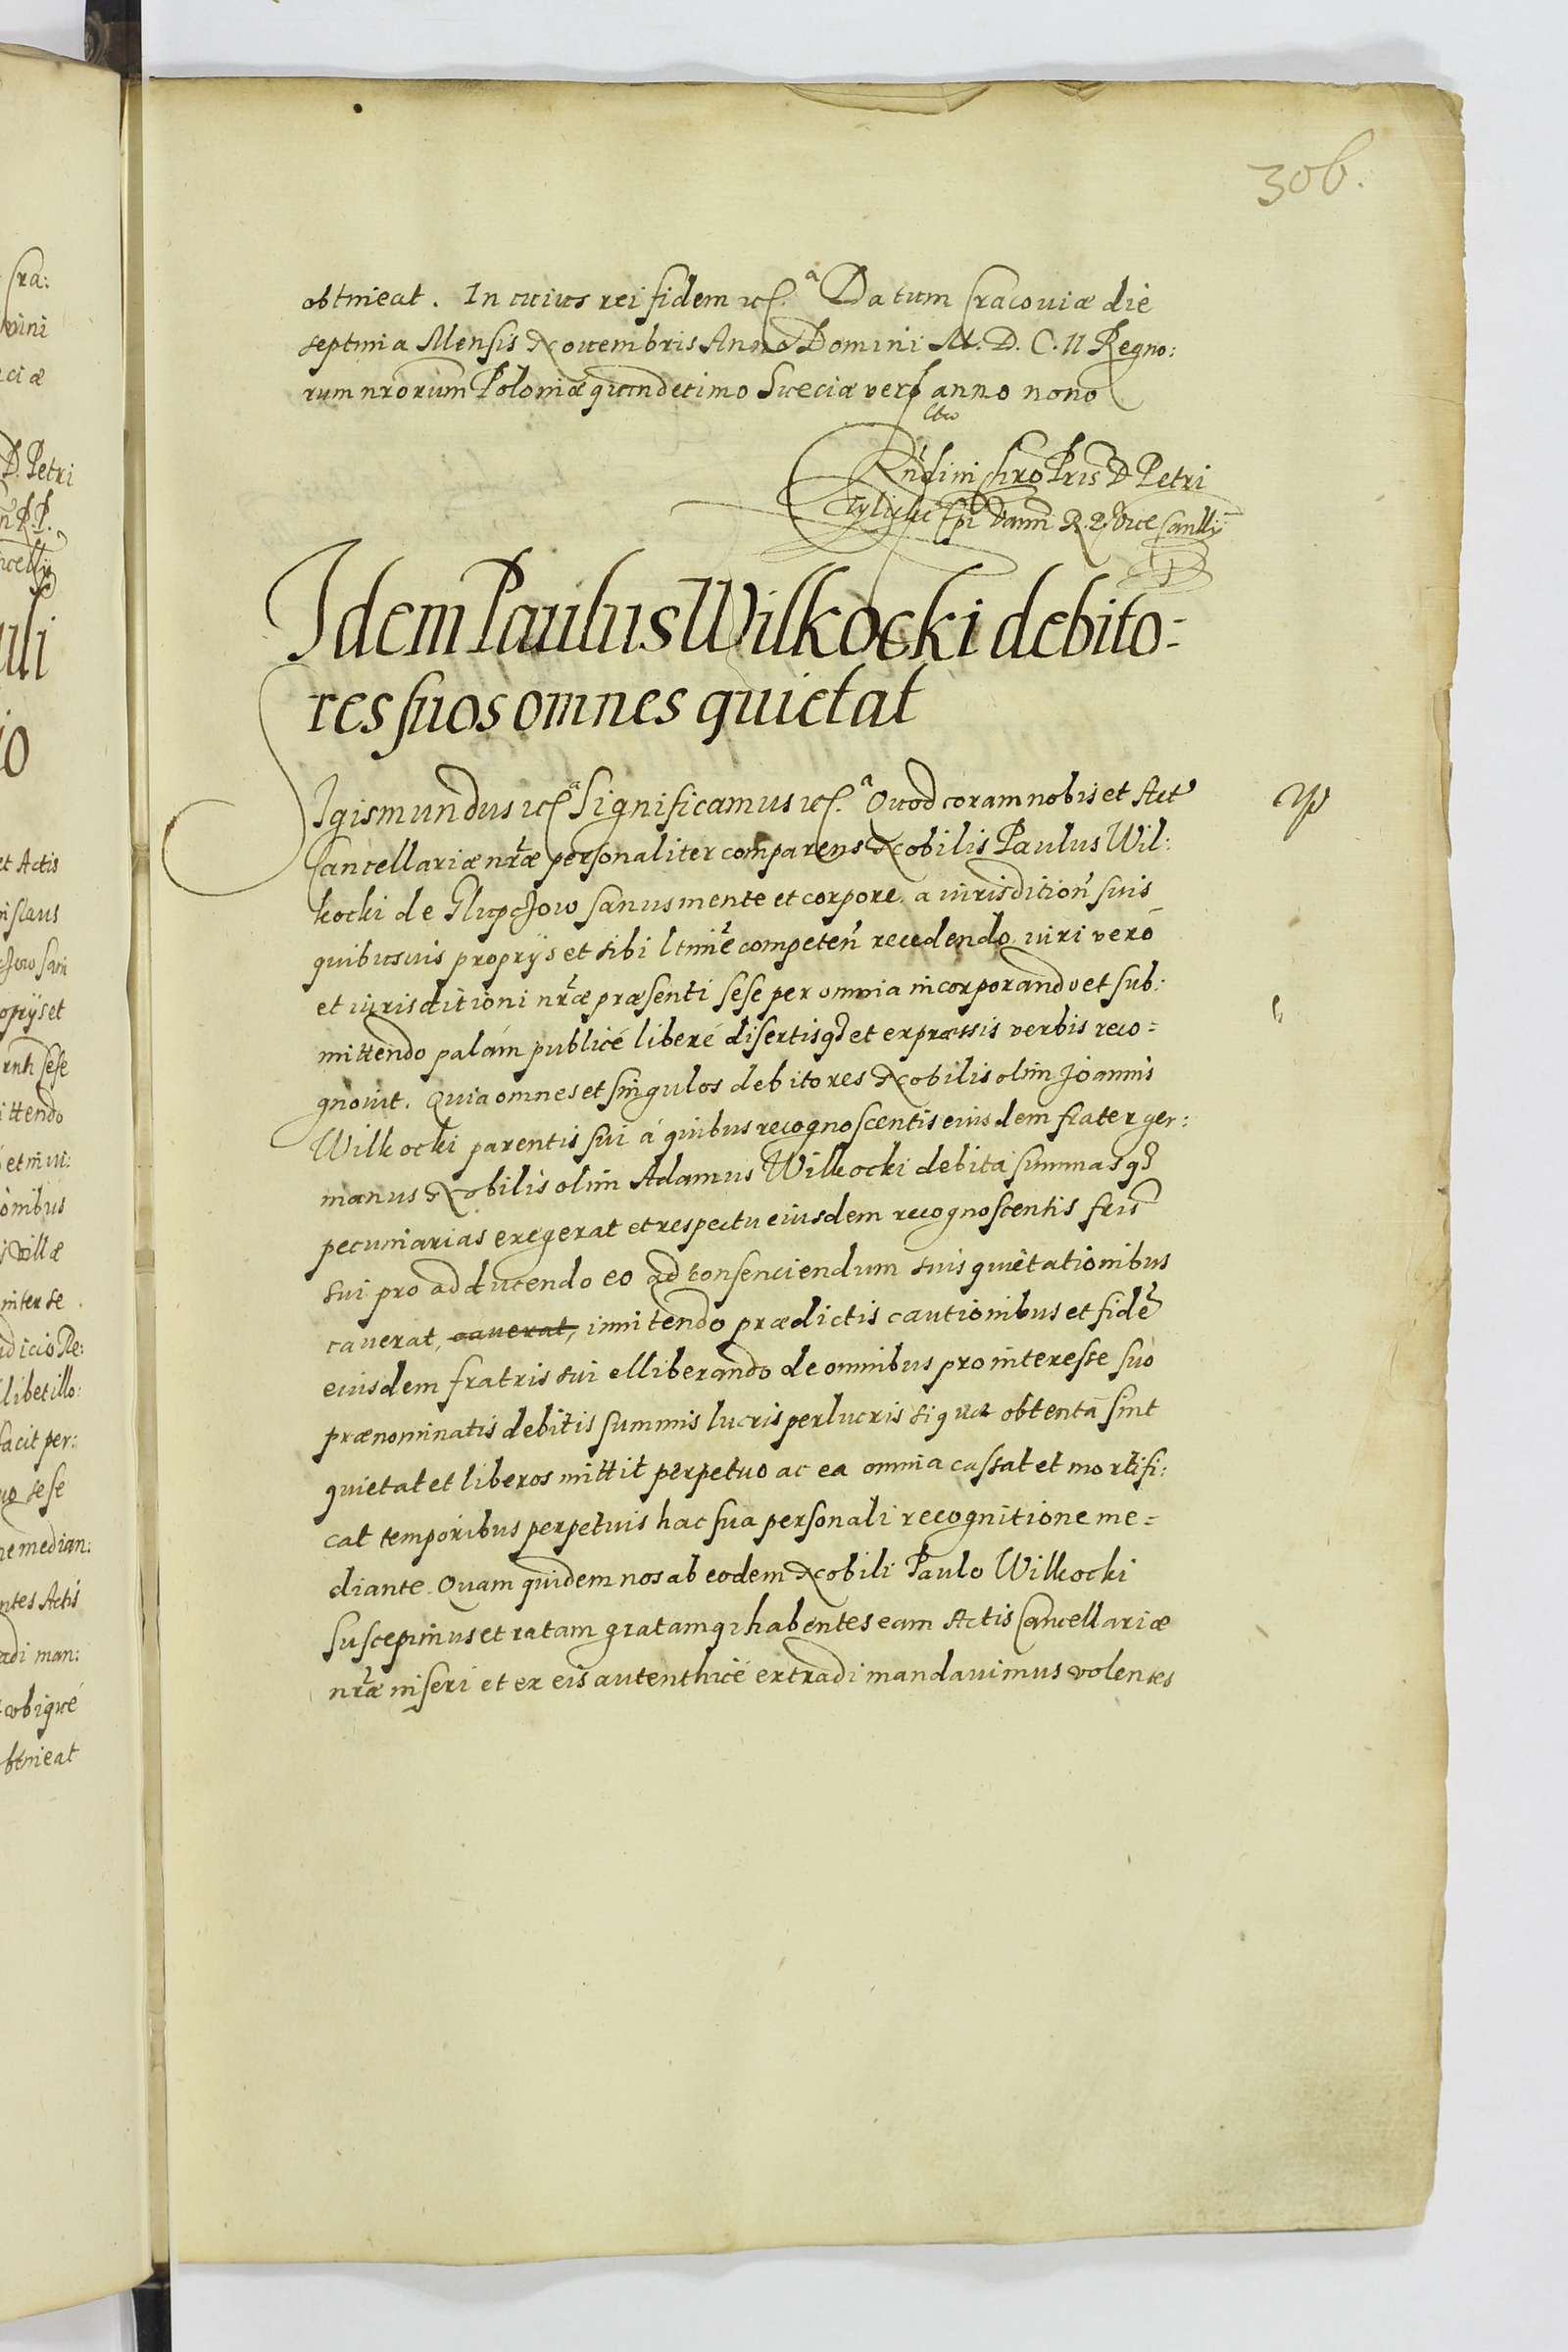 306.
obtineat. In cuius rei fidem etc.ª Datum Cracoviæ die
septima Mensis Novembris Anno Domini M. D. C. II Regno:
rum nrorum Poloniæ quindecimo Sueciæ vero anno nono
Rndi in Chro Pris D Petri
Tylicki Epi Varm R. P. Vice Canllij
Idem Paulus Wilkocki debito=
res suos omnes quietat
Sigismundus etc.ª Significamus etc.ª Quod coram nobis et Act
Cancellariæ nræ personaliter comparens Nobilis Paulus Wil:
kocki de Glupczow sanus mente et corpore a iurisdition suis
quibusvis proprijs et sibi ltime competen recedendo iuri vero
et iurisditioni nræ præsenti sese per omnia incorporando et sub:
mittendo palám publicé liberé disertisq et expræssis verbis reco=
gnovit. Quia omnes et singulos debitores Nobilis olim Joannis
Wilkocki parentis sui á quibus recognoscentis eiusdem frater ger:
manus Nobilis olim Adamus Wilkocki debita summasq
pecuniarias exegerat et respectu eiusdem recognoscentis fris
sui pro adducendo eo ad consenciendum suis quietationibus
caverat, caverat, innitendo prædictis cautionibus et fide
eiusdem fratris sui elliberando de omnibus pro interesse suo
prænominatis debitis summis lucris perlucris si quæ obtenta sint
quietat et liberos mittit perpetuo ac ea omnia cassat et mortifi:
cat temporibus perpetuis hac sua personali recognitione me=
diante. Quam quidem nos ab eodem Nobili Paulo Wilkocki
suscepimus et ratam gratamq habentes eam Actis Cancellariæ
nræ inseri et ex eis autenthicé extradi mandavimus volentes